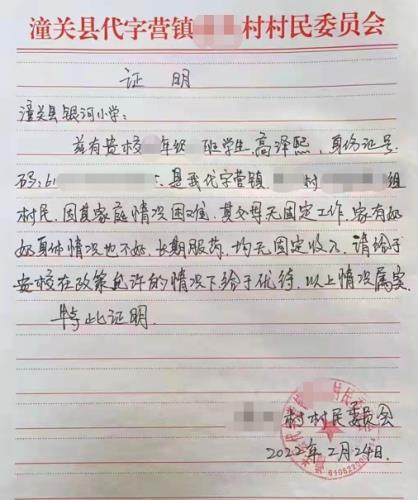 潼关县代字营镇 村村民委员会
证明
潼关县银河小学:
兹有贵校 年级 班学生高泽熙,身份证号
码:61 是我代字营镇 村 组
村民,因其家庭情况困难,其父母无固定工作,家有奶
奶身体情况也不好,长期服药,均无固定收入,请给于
贵校在政策允许的情况下给于优待,以上情况属实
特此证明.
村村民委员会
2022年2月24日.